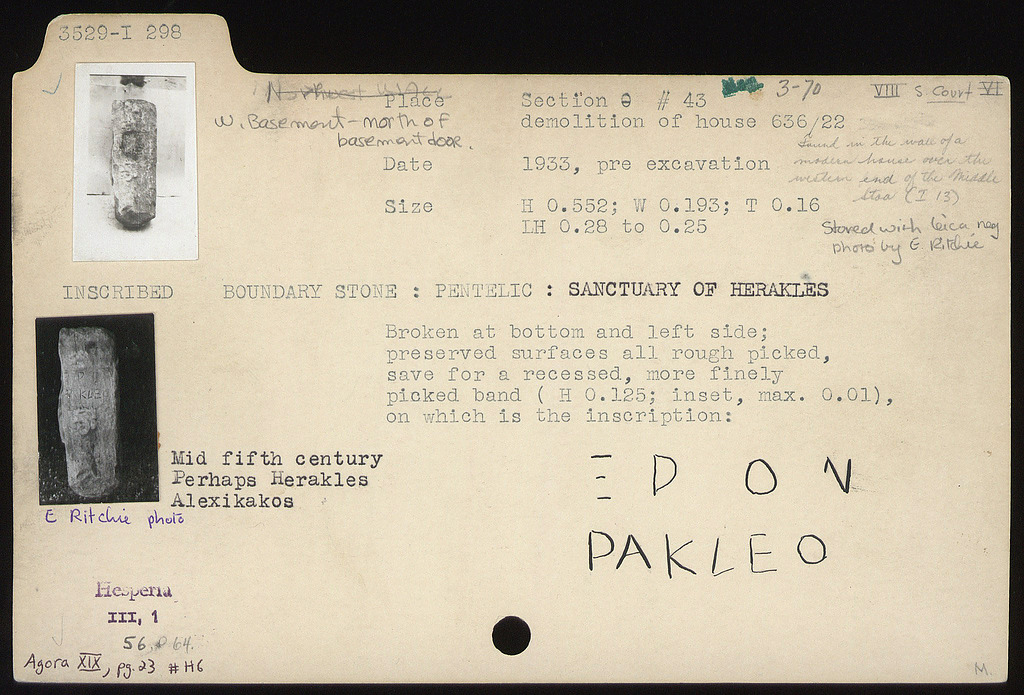 3529-I 298
Northwest
W. Basement-north of
basement door.
Place Section Θ # 43
demolition of house 636/22
Date 1933, pre excavation
Size H 0.552; W 0.193; T 0.16
LH 0.28 to 0.25
3-70
VIII S. Court VI
Found in the wall of a
modern house over the
western end of the Middle
Stoa (I 13)
Stored with leica neg
photo by E. Ritchie
INSCRIBED BOUNDARY STONE : PENTELIC : SANCTUARY OF HERAKLES
Broken at bottom and left side;
preserved surfaces all rough picked,
save for a recessed, more finely
picked band ( H 0.125; inset, max. 0.01),
on which is the inscription:
Mid fifth century
Perhaps Herakles
Alexikakos
E Ritchie photo
Ξ D O N
PAKLEO
Hesperia
III, 1
56, 64.
Agora XIX, pg. 23 # H6
M.